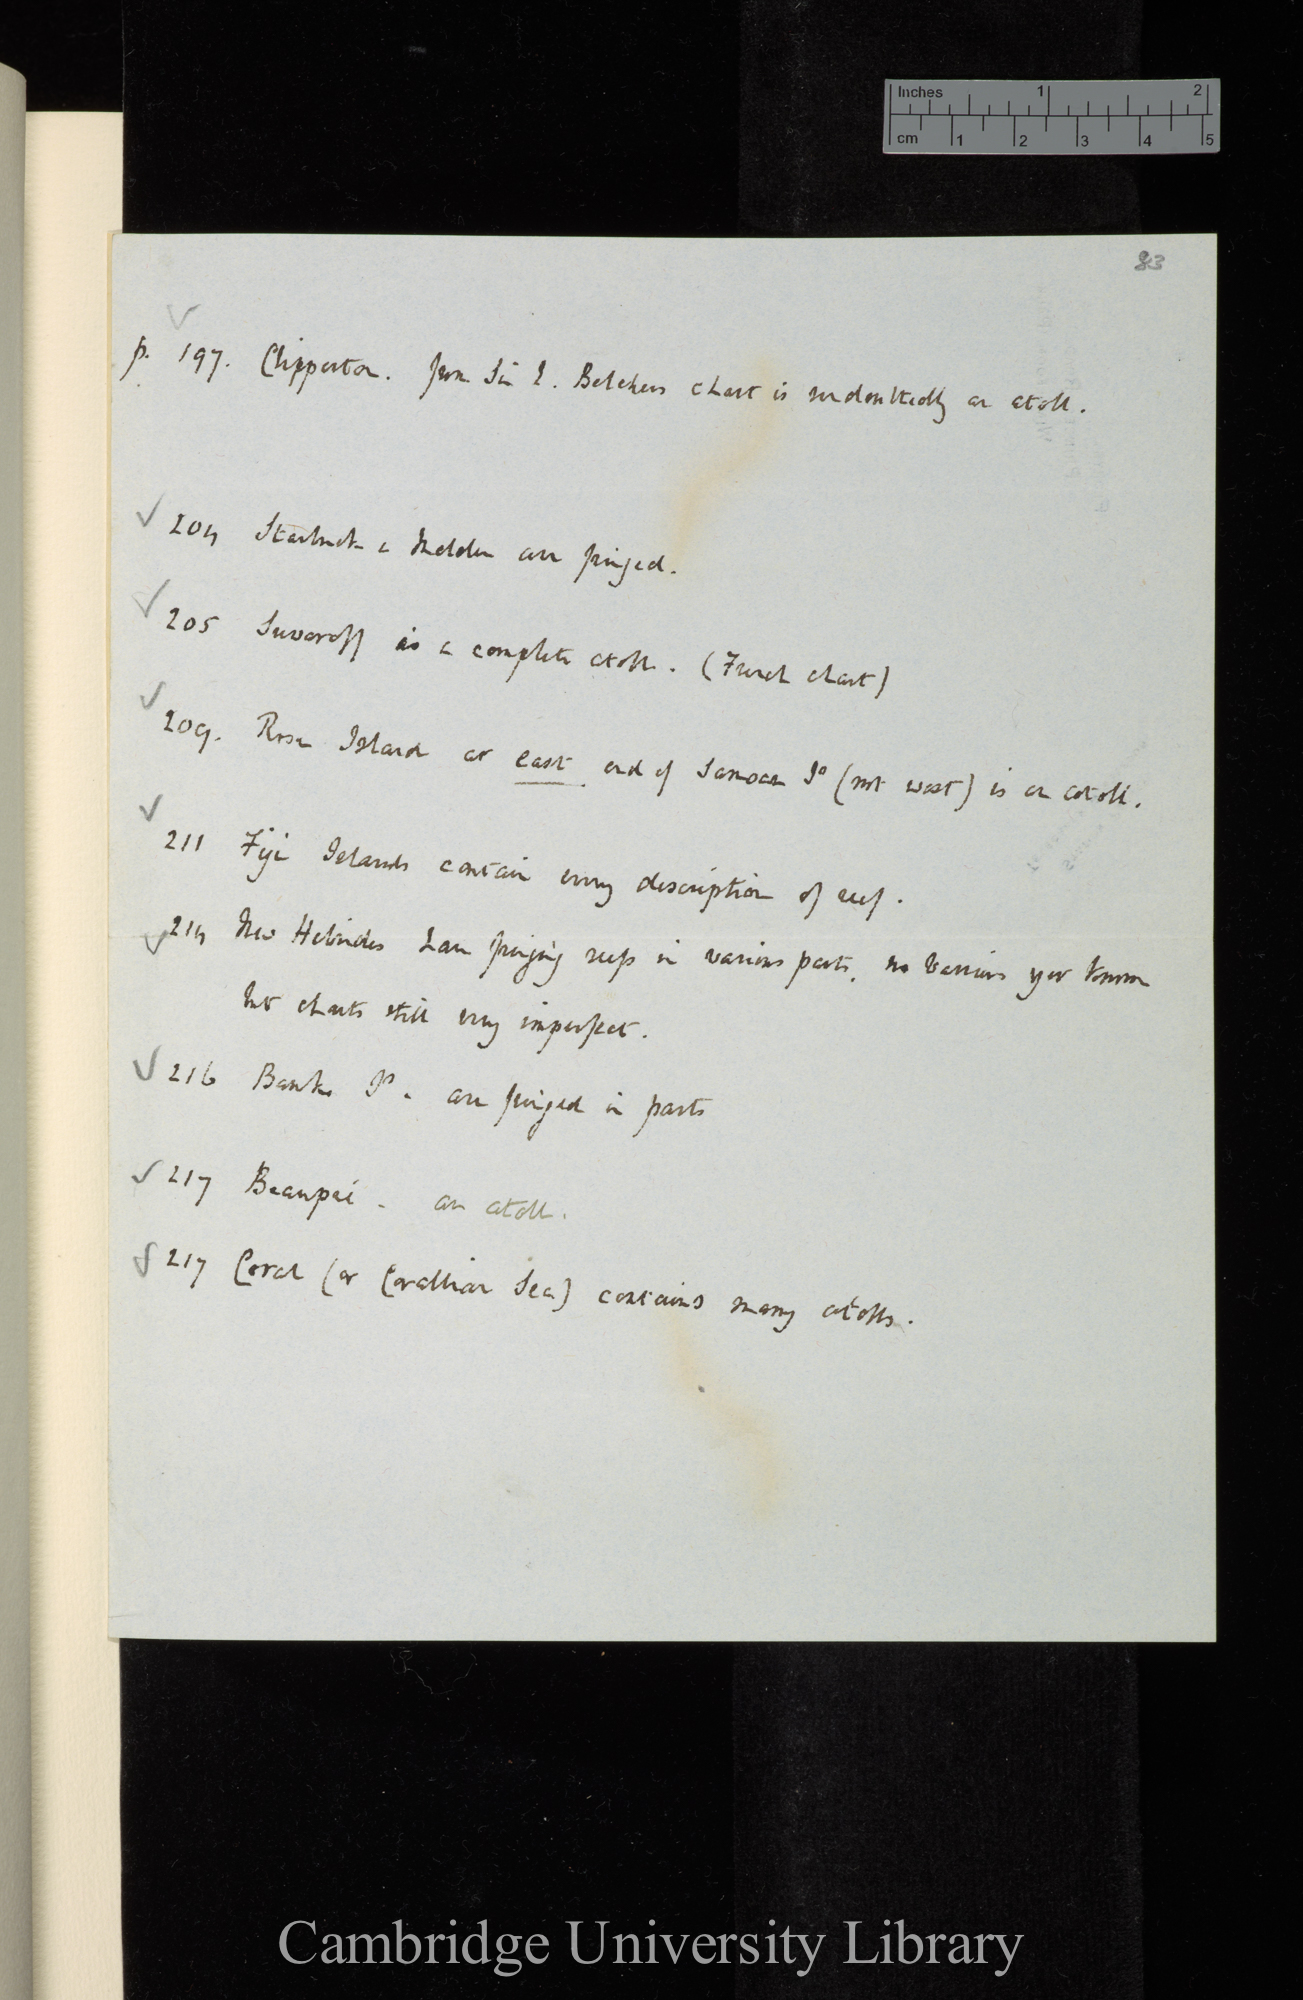 Inches 1 2
cm 1 2 3 4 5
83
p. 197. Clipperton. from Sir E. Belchers chart is undoubtedly an atoll.
204 Starbuck & Malden are fringed.
205 Suvaroff is a complete atoll. (French chart)
209. Rose Island at east end of Samoan Is (not west) is an atoll.
211 Fiji Islands contain every description of reef.
214 New Hebrides have fringing reefs in various parts, no barriers yet known
but charts still very imperfect.
216 Banks Is. are fringed in parts
217 Beaupré - an atoll.
217 Coral (or Corallian Sea) contains many atolls.
Cambridge University Library